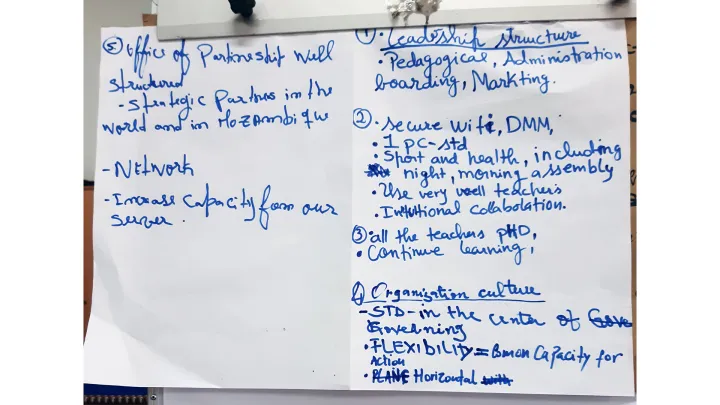 1. Leadeship structure
• Pedagogical, Administration
boarding, Markting.
② • secure wifi, DMM,
• 1 pc-std
• Sport and health, including
night, morning assembly
• Use very well teachers
• Intutional collabolation.
③ • all the teachers pHD,
• Continue learning,
4) Organisation culture
- STD - in the center of Gove
Governing
• FLEXIBILITY = Capacity for
Action
• PLANE Horizontal with
⑤ Office of Partineship well
structured
- Strategic Partnes in the
world and in MOZAMbique
- NETWORK
- Increase Capacity from our
server.